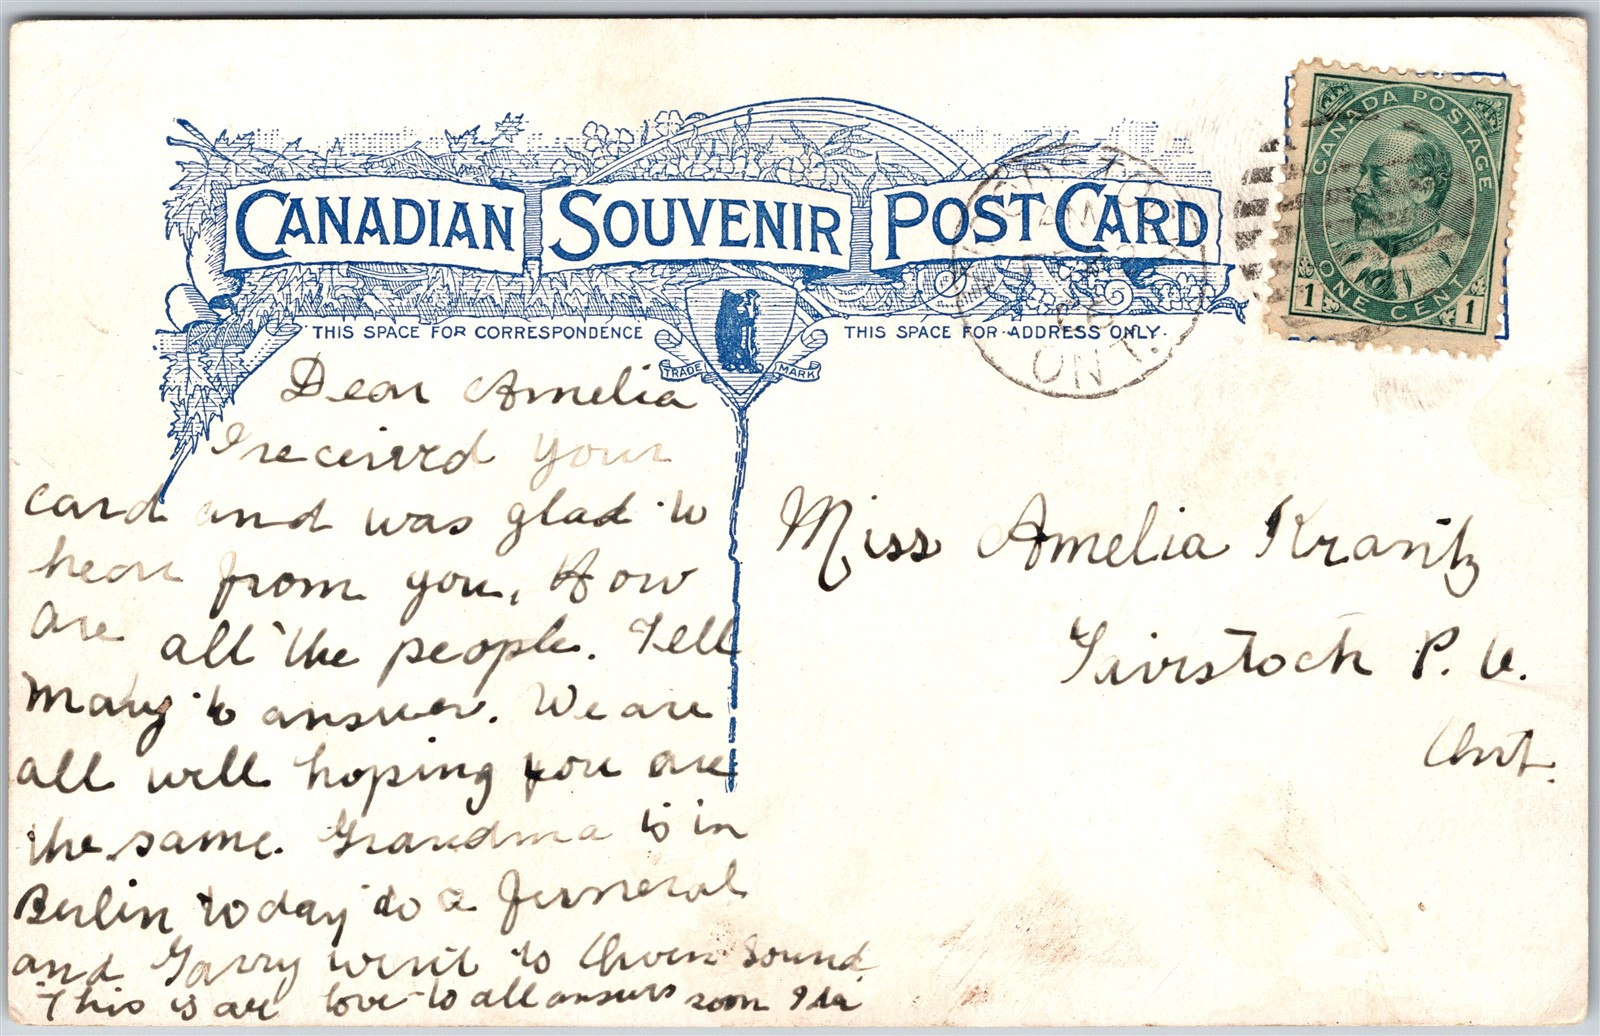 CANADIAN SOUVENIR POST CARD
CANADA POSTAGE
ONE CENT
1 1
THIS SPACE FOR CORRESPONDENCE
THIS SPACE FOR ADDRESS ONLY.
TRADE MARK
AM
ONT.
Dear Amelia
I received your
card and was glad to
hear from you, How
are all the people. Tell
Mary to answer. We are
all well hoping you are
the same. Grandma is in
Berlin today to a funeral
and Harry went to Owen Sound
This is all love to all answer soon Ida
Miss Amelia Krantz
Tavistock P. O.
Ont.